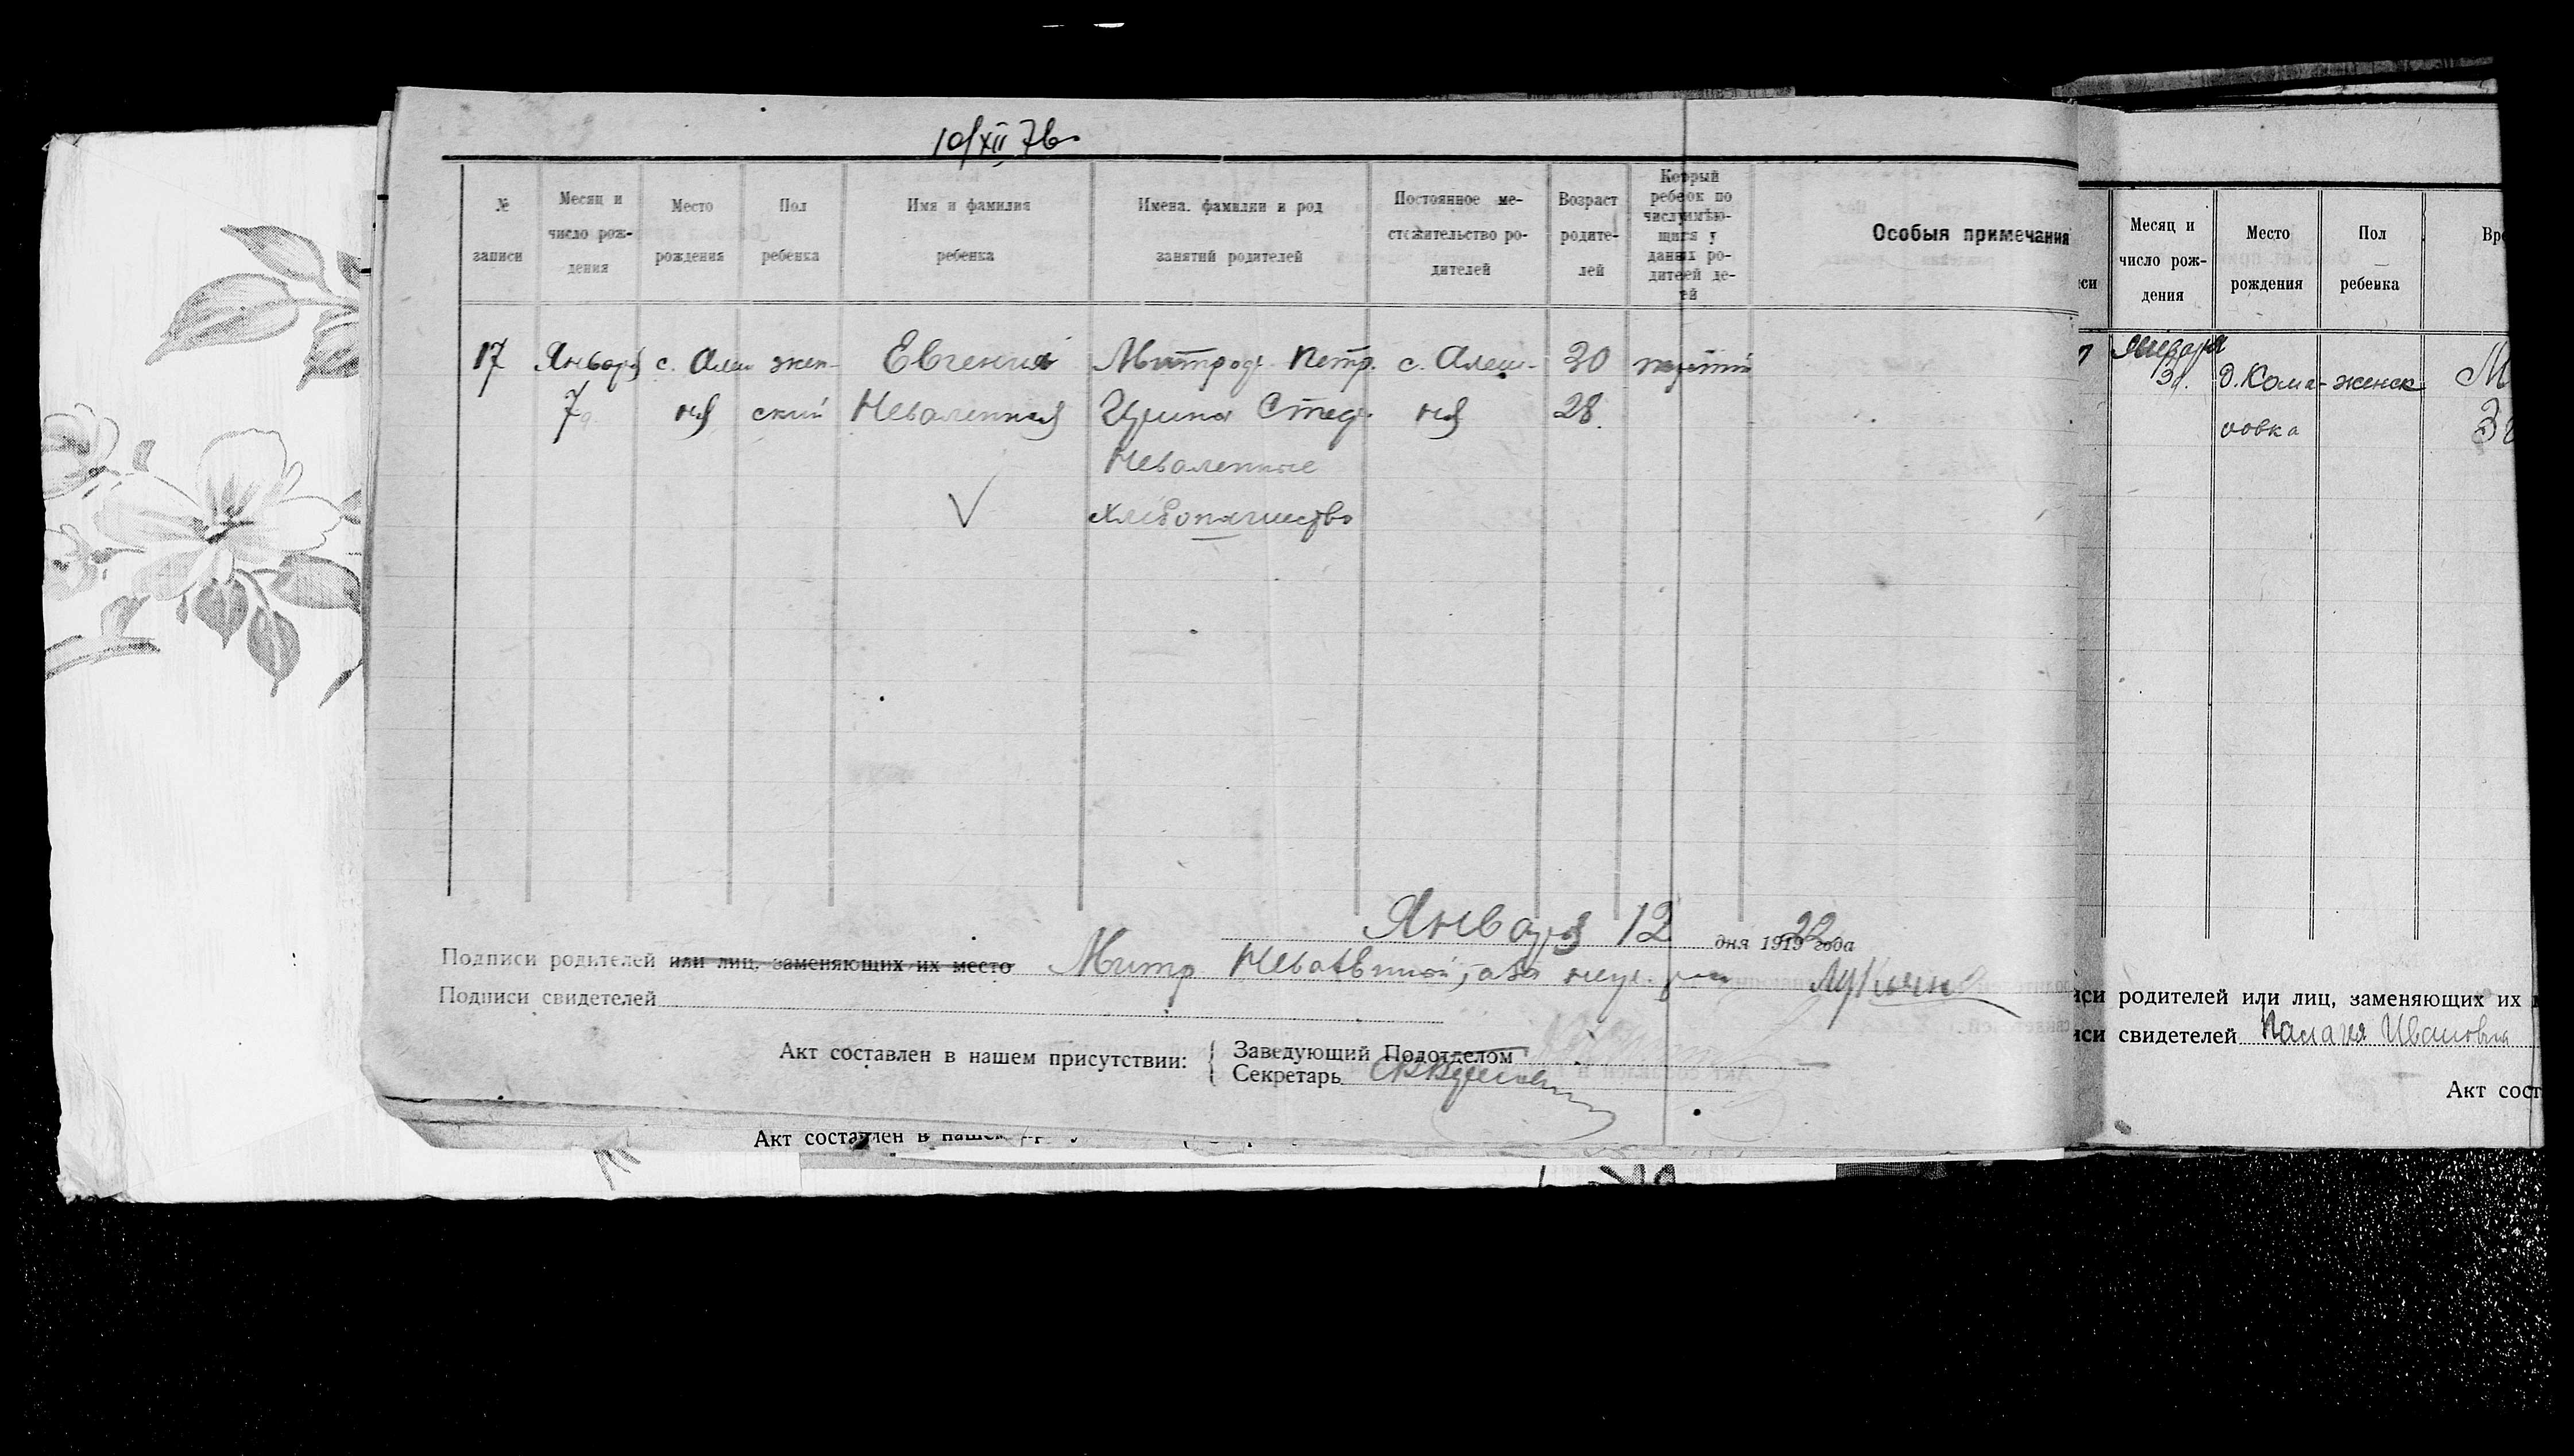 10/XII 76
№ записи
Месяц и число рождения
Место рождения
Пол ребенка
Имя и фамилия ребенка
Имена, фамилии и род занятий родителей
Постоянное местожительство родителей
Возраст родителей
Который ребенок по числу имѣющихся у данных родителей детей
Особыя примечания
17 Января с. Алеш жен- Евгения Митроф. Петр. с. Алеш- 30 третий
7 ня ский Неваленная Ирина Стеф. ня 28
Неваленные
хлебопашество
Января 12 дня 1922 года
Подписи родителей или лиц, заменяющих их место Митр
Подписи свидетелей
Акт составлен в нашем присутствии:
Заведующий Подотделом
Секретарь
Акт составлен в нашем
Месяц и число рождения
Место рождения
Пол ребенка
Января
3 д. Кома- женск
ровка
родителей или лиц, заменяющих их
свидетелей Палагея Ивановна
Акт сост